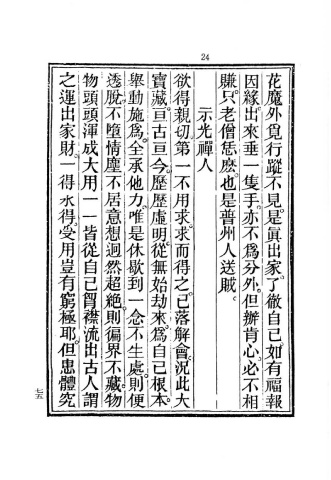 24
花魔外覓行蹤不見是眞出家了徹自己如有福報
因緣出來垂一隻手亦不爲分外但辦肯心必不相
賺只老僧恁麽也是普州人送賊
示光禪人
欲得親切第一不用求求而得之已落解會況此大
寶藏亘古亘今歷歷虛明從無始劫來爲自己根本
舉動施爲全承他力唯是休歇到一念不生處則便
透脫不墮情塵不居意想迥然超絕則徧界不藏物
物頭頭渾成大用一一皆從自己胷襟流出古人謂
之運出家財一得永得受用豈有窮極耶但患體究
七五